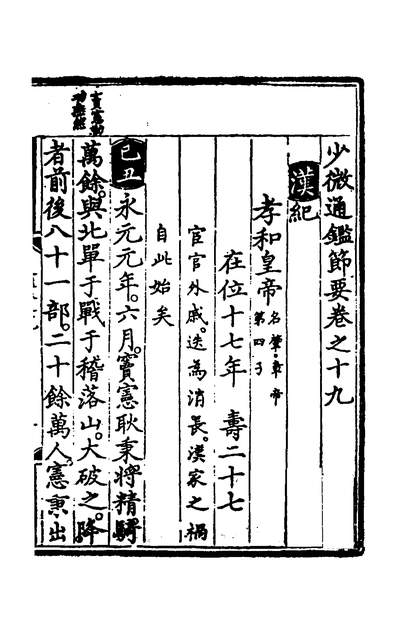 少微通鑑節要卷之十九
漢紀
孝和皇帝名肇章帝
第四子
在位十七年 壽二十七
宦官外戚。迭為消長。漢家之禍
自此始矣
己丑永元元年。六月。竇憲耿秉將精騎
萬餘。與北單于戰于稽落山。大破之。降
者前後八十一部。二十餘萬人。憲秉出